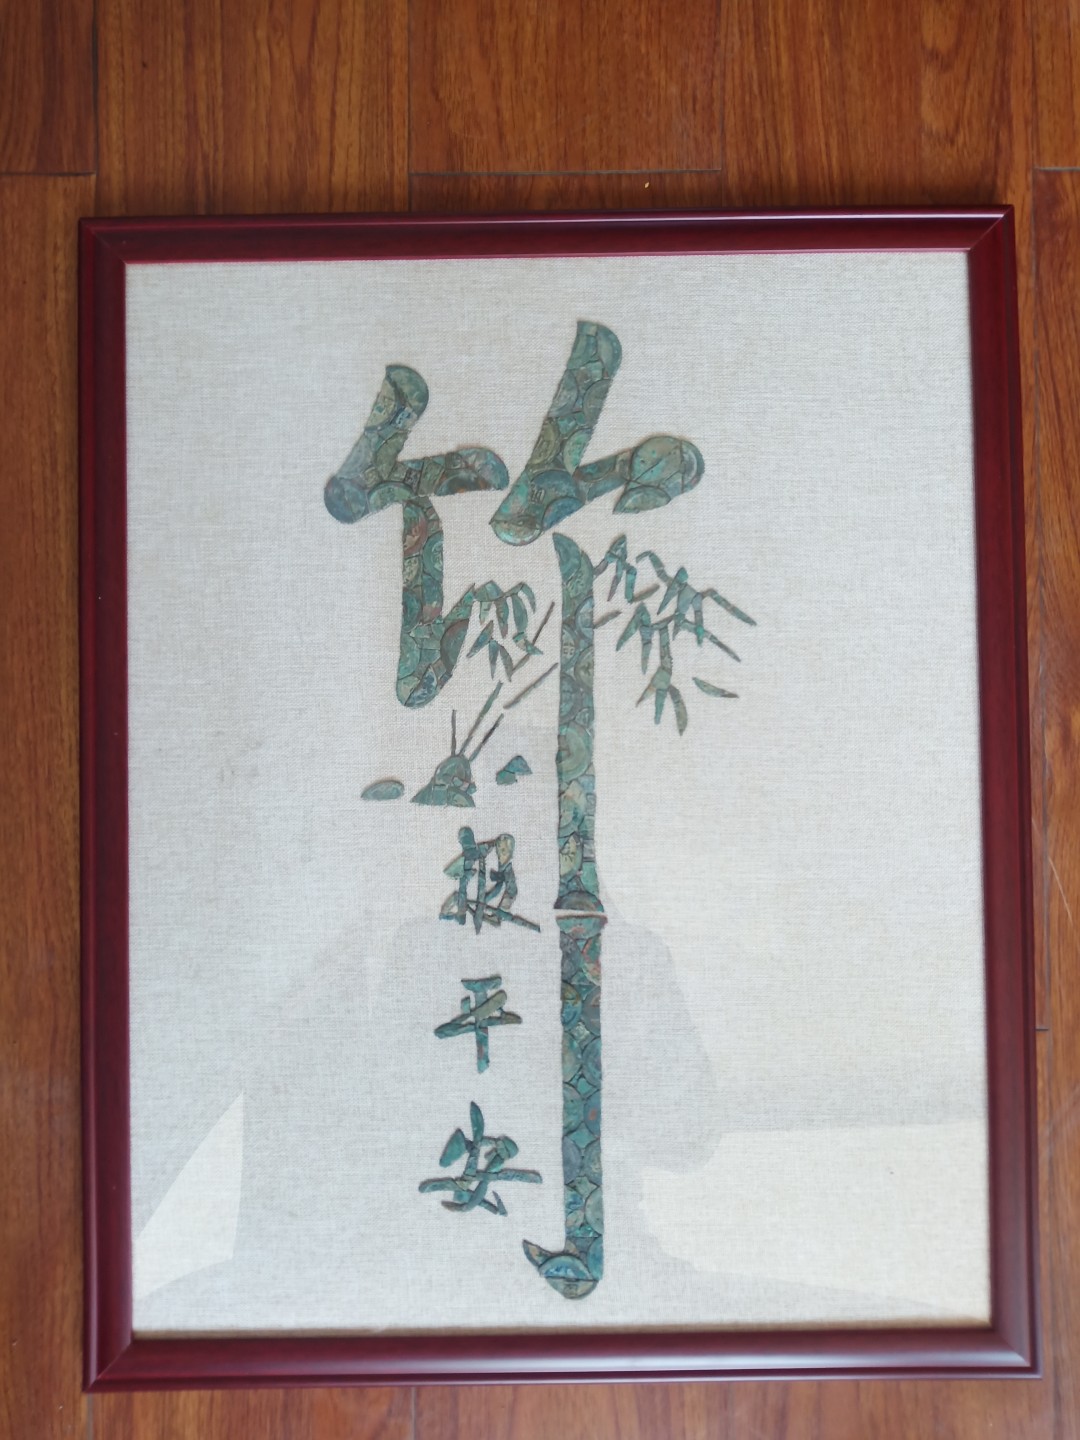 竹
报
平
安